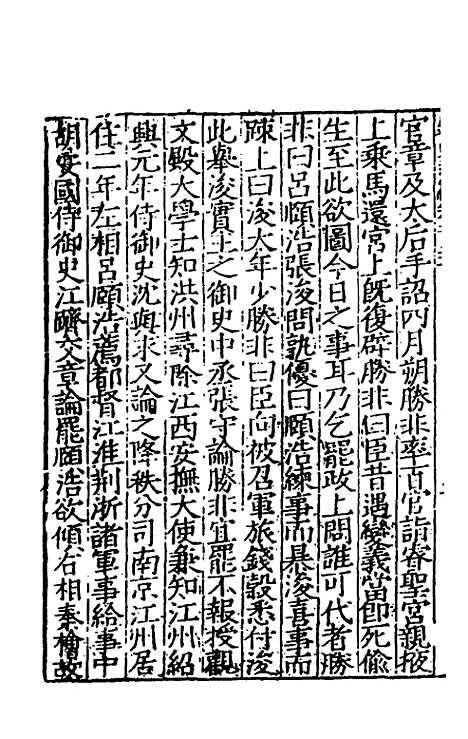 官章及太后手詔四月朔勝非率百官詣睿聖宮親掖
上乗馬還宮上旣復辟勝非曰臣昔遇變義當即死偷
生至此欲圖今日之事耳乃乞罷政上問誰可代者勝
非曰呂頤浩張浚問孰優曰頤浩練事而暴浚喜事而
踈上曰浚太年少勝非曰臣向被召軍旅錢穀悉付浚
此舉浚實主之御史中丞張守論勝非宜罷不報授觀
文殿大學士知洪州尋除江西安撫大使兼知江州紹
興元年侍御史沈與求又論之降秩分司南京江州居
住二年左相呂頤浩薦都督江淮荆浙諸軍事給事中
胡安國侍御史江躋交章論罷頤浩欲傾右相秦檜故